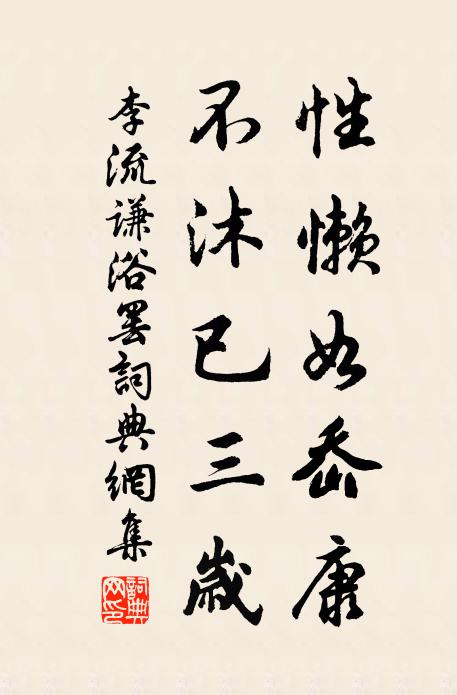 性懶如嵇康
不沐已三歲
李流謙浴罷詞典網集
詞典网印